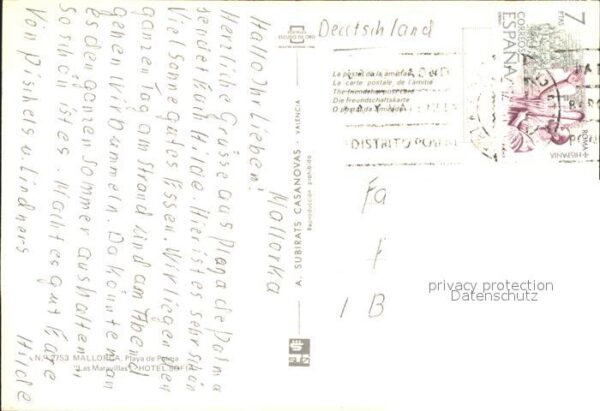 Mallorka
Hallo Ihr Lieben!
Herzliche Grüsse aus Playa de Palma
sendet Euch Hilde. Hier ist es sehr schön
Viel Sonne gutes Essen. Wir liegen den
ganzen Tag am Strand und am Abend
gehen wir bummeln. Da könnte man
es den ganzen Sommer aushalten
So schön ist es. Macht es gut Eure
Hilde
Von Pischels u. Lindners
N.º 2753 MALLORCA. Playa de Palma
"Las Maravillas" - HOTEL SOFIA
A. SUBIRATS CASANOVAS - VALENCIA
Reproducción prohibida
Deutschland
La postal de la amistad
La carte postale de l'amitié
The friendship post card
Die freundschaftskarte
DISTRITO POSTAL
7
PTAS
CORREOS
ESPAÑA
ROMA
HISPANIA
Fa
F
1 B
privacy protection
Datenschutz